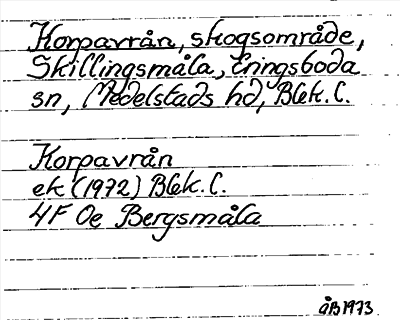 Korpavrån, skogsområde,
Skillingsmåla, Eringsboda
sn, Medelstads hd, Blek. L.
Korpavrån
ek (1972) Blek. L.
4F 0e Bergsmåla
ÅB 1973